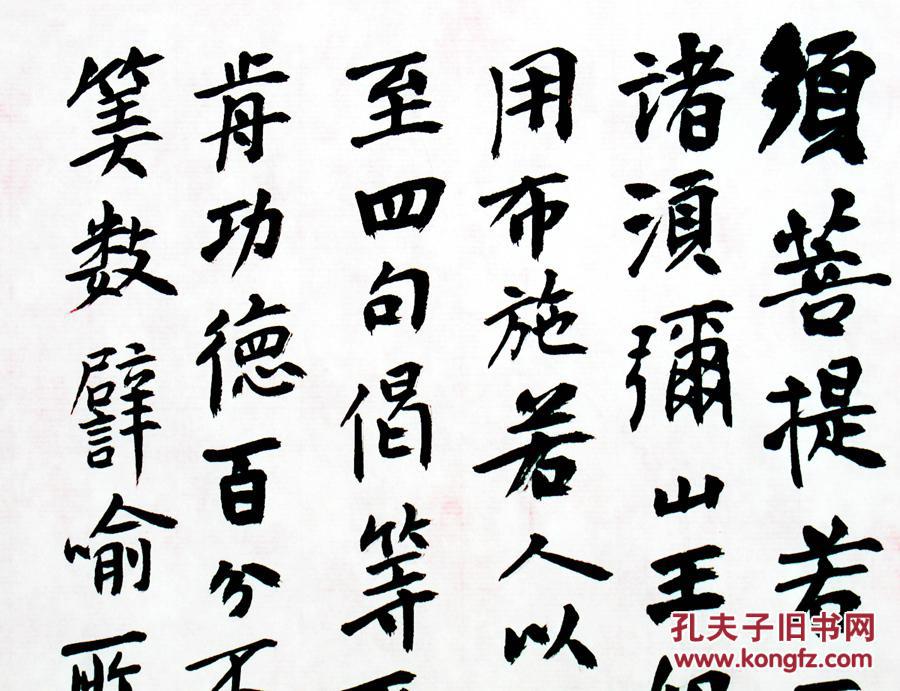 須菩提若
諸須彌山王
用布施若人以
至四句偈等
前功德百分不
筭数譬喻所
孔夫子旧书网
www.kongfz.com